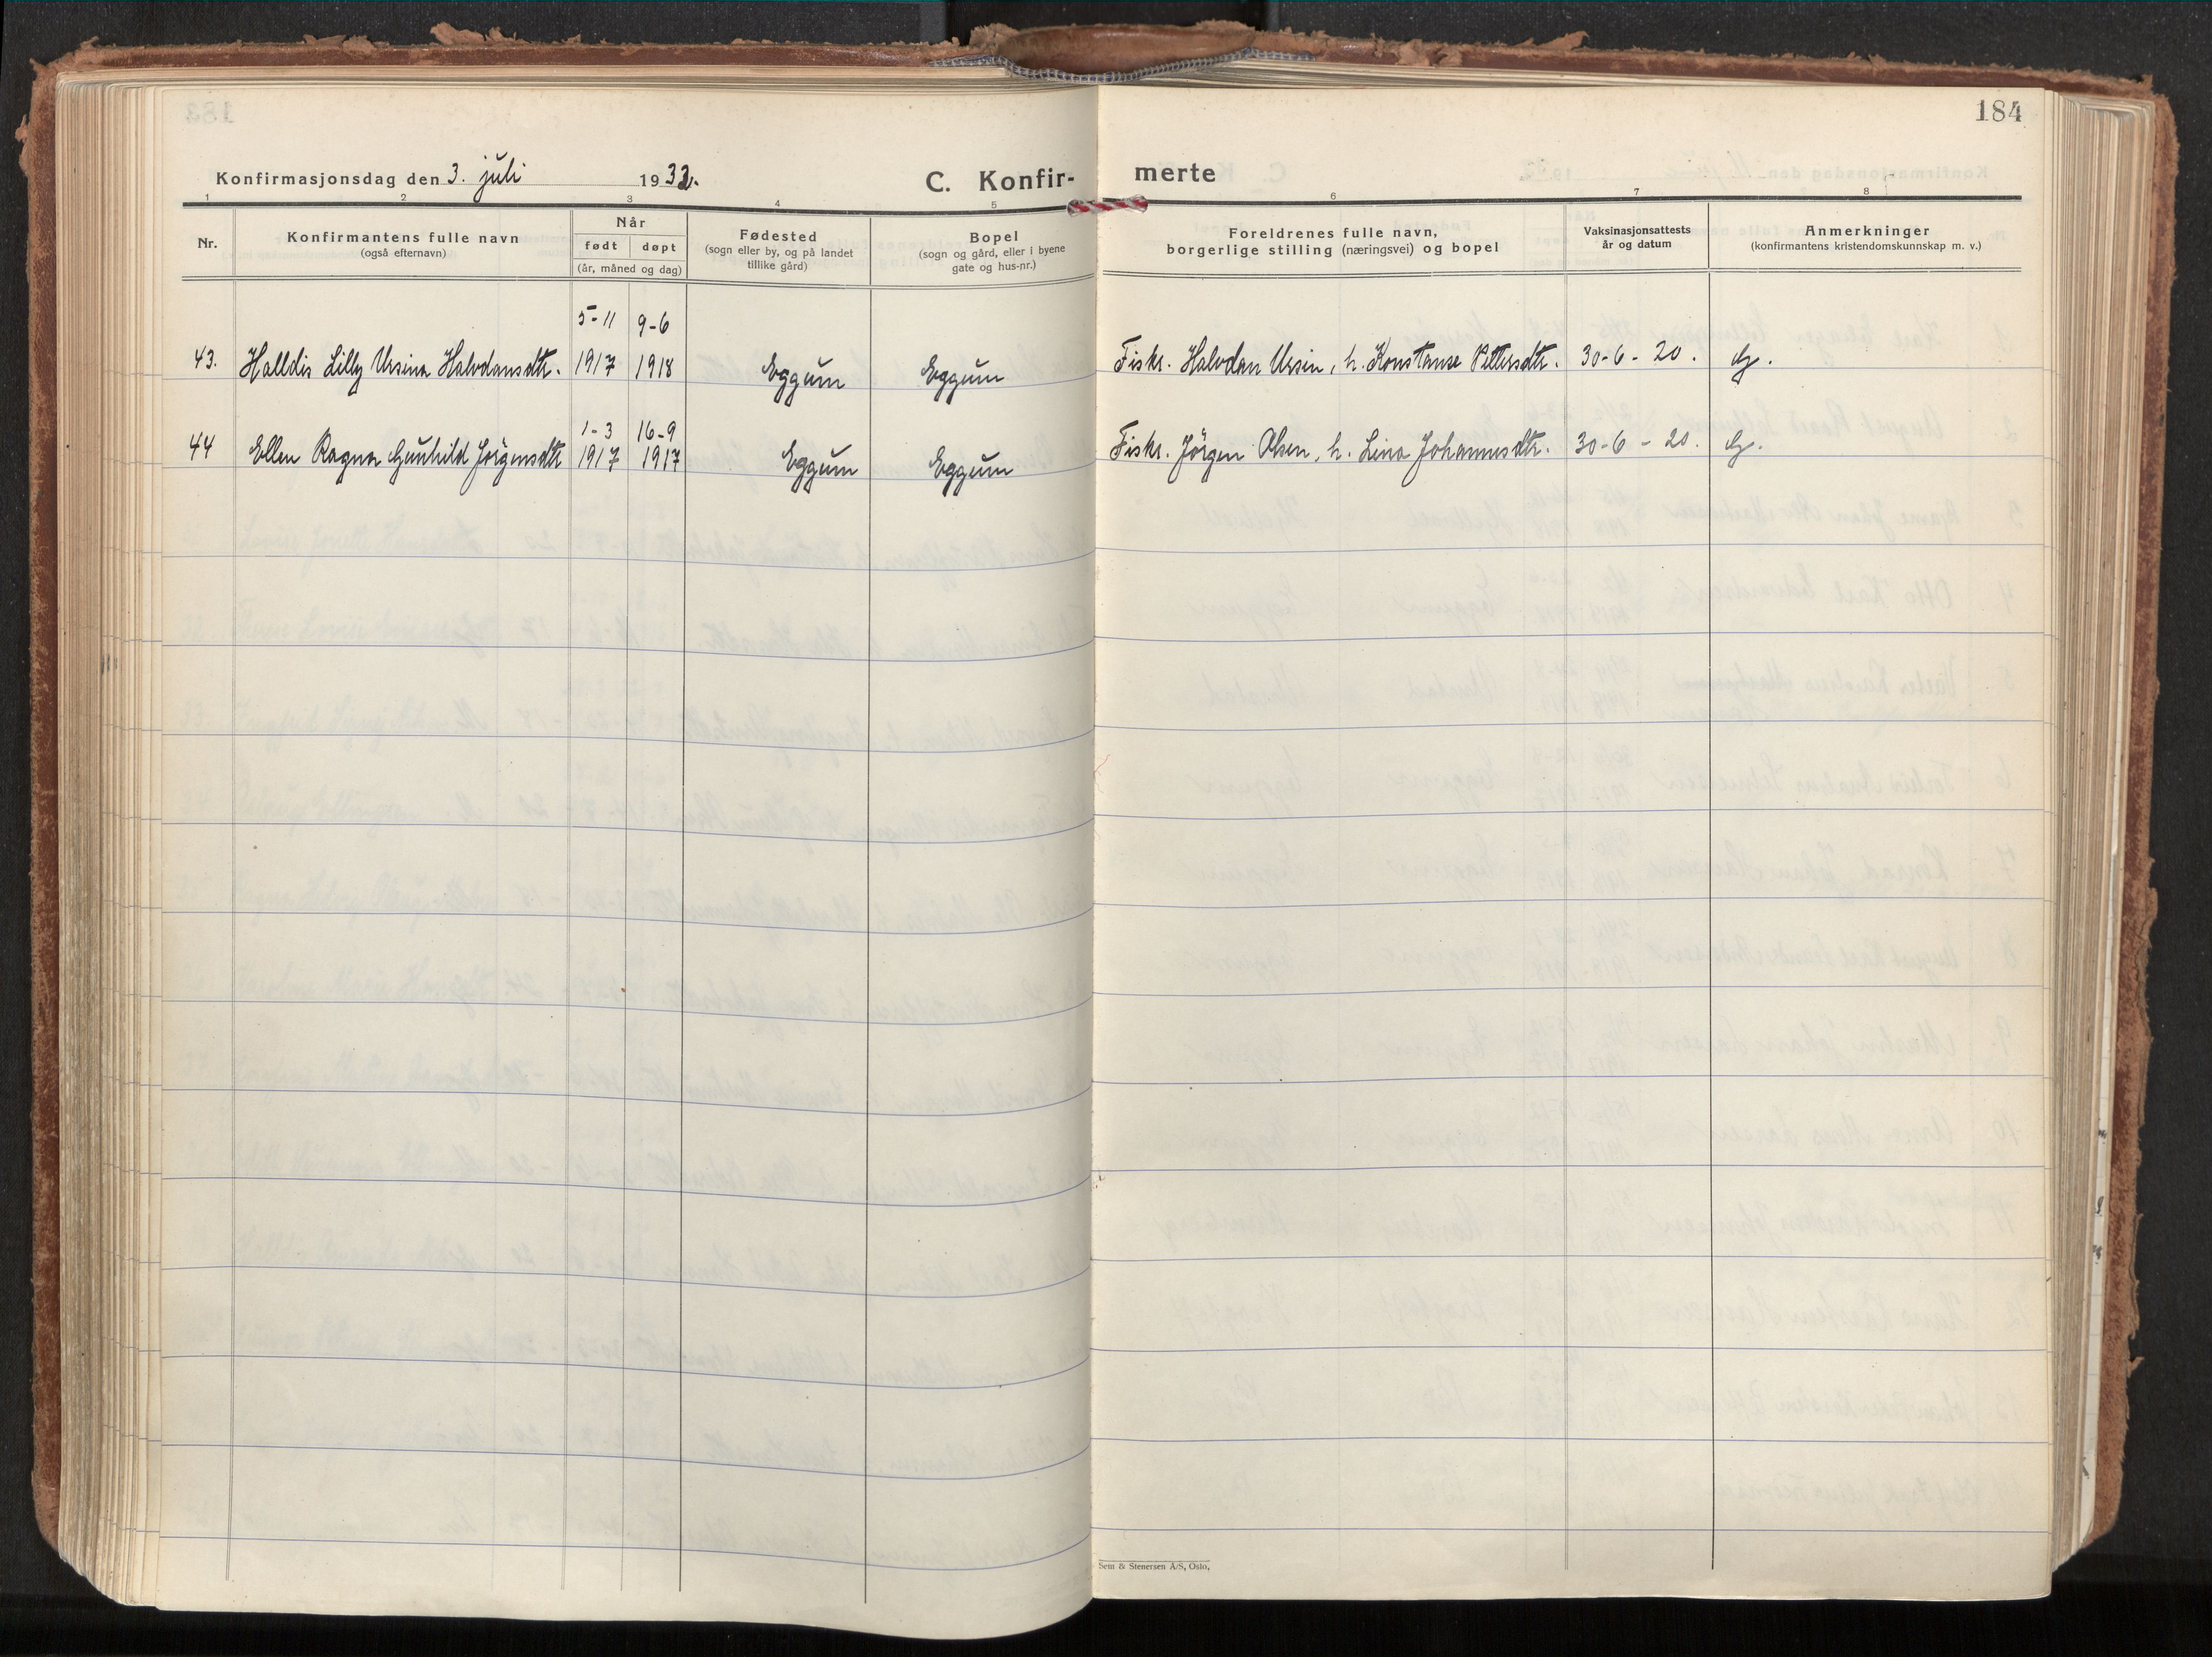 184
Konfirmasjonsdag den 3. juli 1932.
C. Konfir- merte
1 2 3 4 5 6 7 8
Nr.
Konfirmantens fulle navn
(også efternavn)
Når
født døpt
(år, måned og dag)
Fødested
(sogn eller by, og på landet
tillike gård)
Bopel
(sogn og gård, eller i byene
gate og hus-nr.)
Foreldrenes fulle navn,
borgerlige stilling (næringsvei) og bopel
Vaksinasjonsattests
år og datum
Anmerkninger
(konfirmantens kristendomskunnskap m. v.)
5-11 9-6
43. Halldis Lilly Ursina Halvdansdtr. 1917 1918 Eggum Eggum Fiskr. Halvdan Ursin, h. Konstanse Pettersdtr. 30-6-20. g.
1-3 16-9
44 Ellen Ragna Gunhild Jörgensdtr 1917 1917 Eggum Eggum Fiskr. Jörgen Olsen, h. Lina Johannesdtr. 30-6-20. g.
Sem & Stenersen A/S, Oslo.